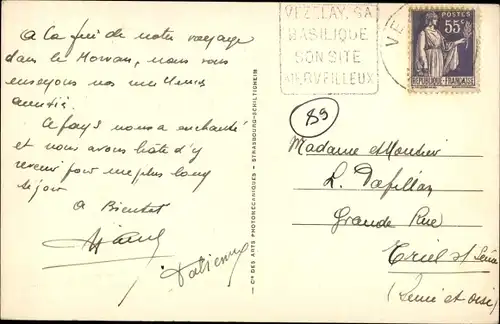 A la fin de notre voyage
dans le Morvan, nous vous
envoyons nos meilleures
amitiés.
Ce pays nous a enchanté
et nous avons hâte d'y
revenir pour un plus long
séjour
A Bientôt
VEZELAY, SA
BASILIQUE
SON SITE
MERVEILLEUX
VE
POSTES
55c
REPUBLIQUE-FRANÇAISE
89
Madame et Monsieur
L.
Grande Rue
Triel s/ Seine
(Seine et Oise)
Cie DES ARTS PHOTOMÉCANIQUES - STRASBOURG-SCHILTIGHEIM